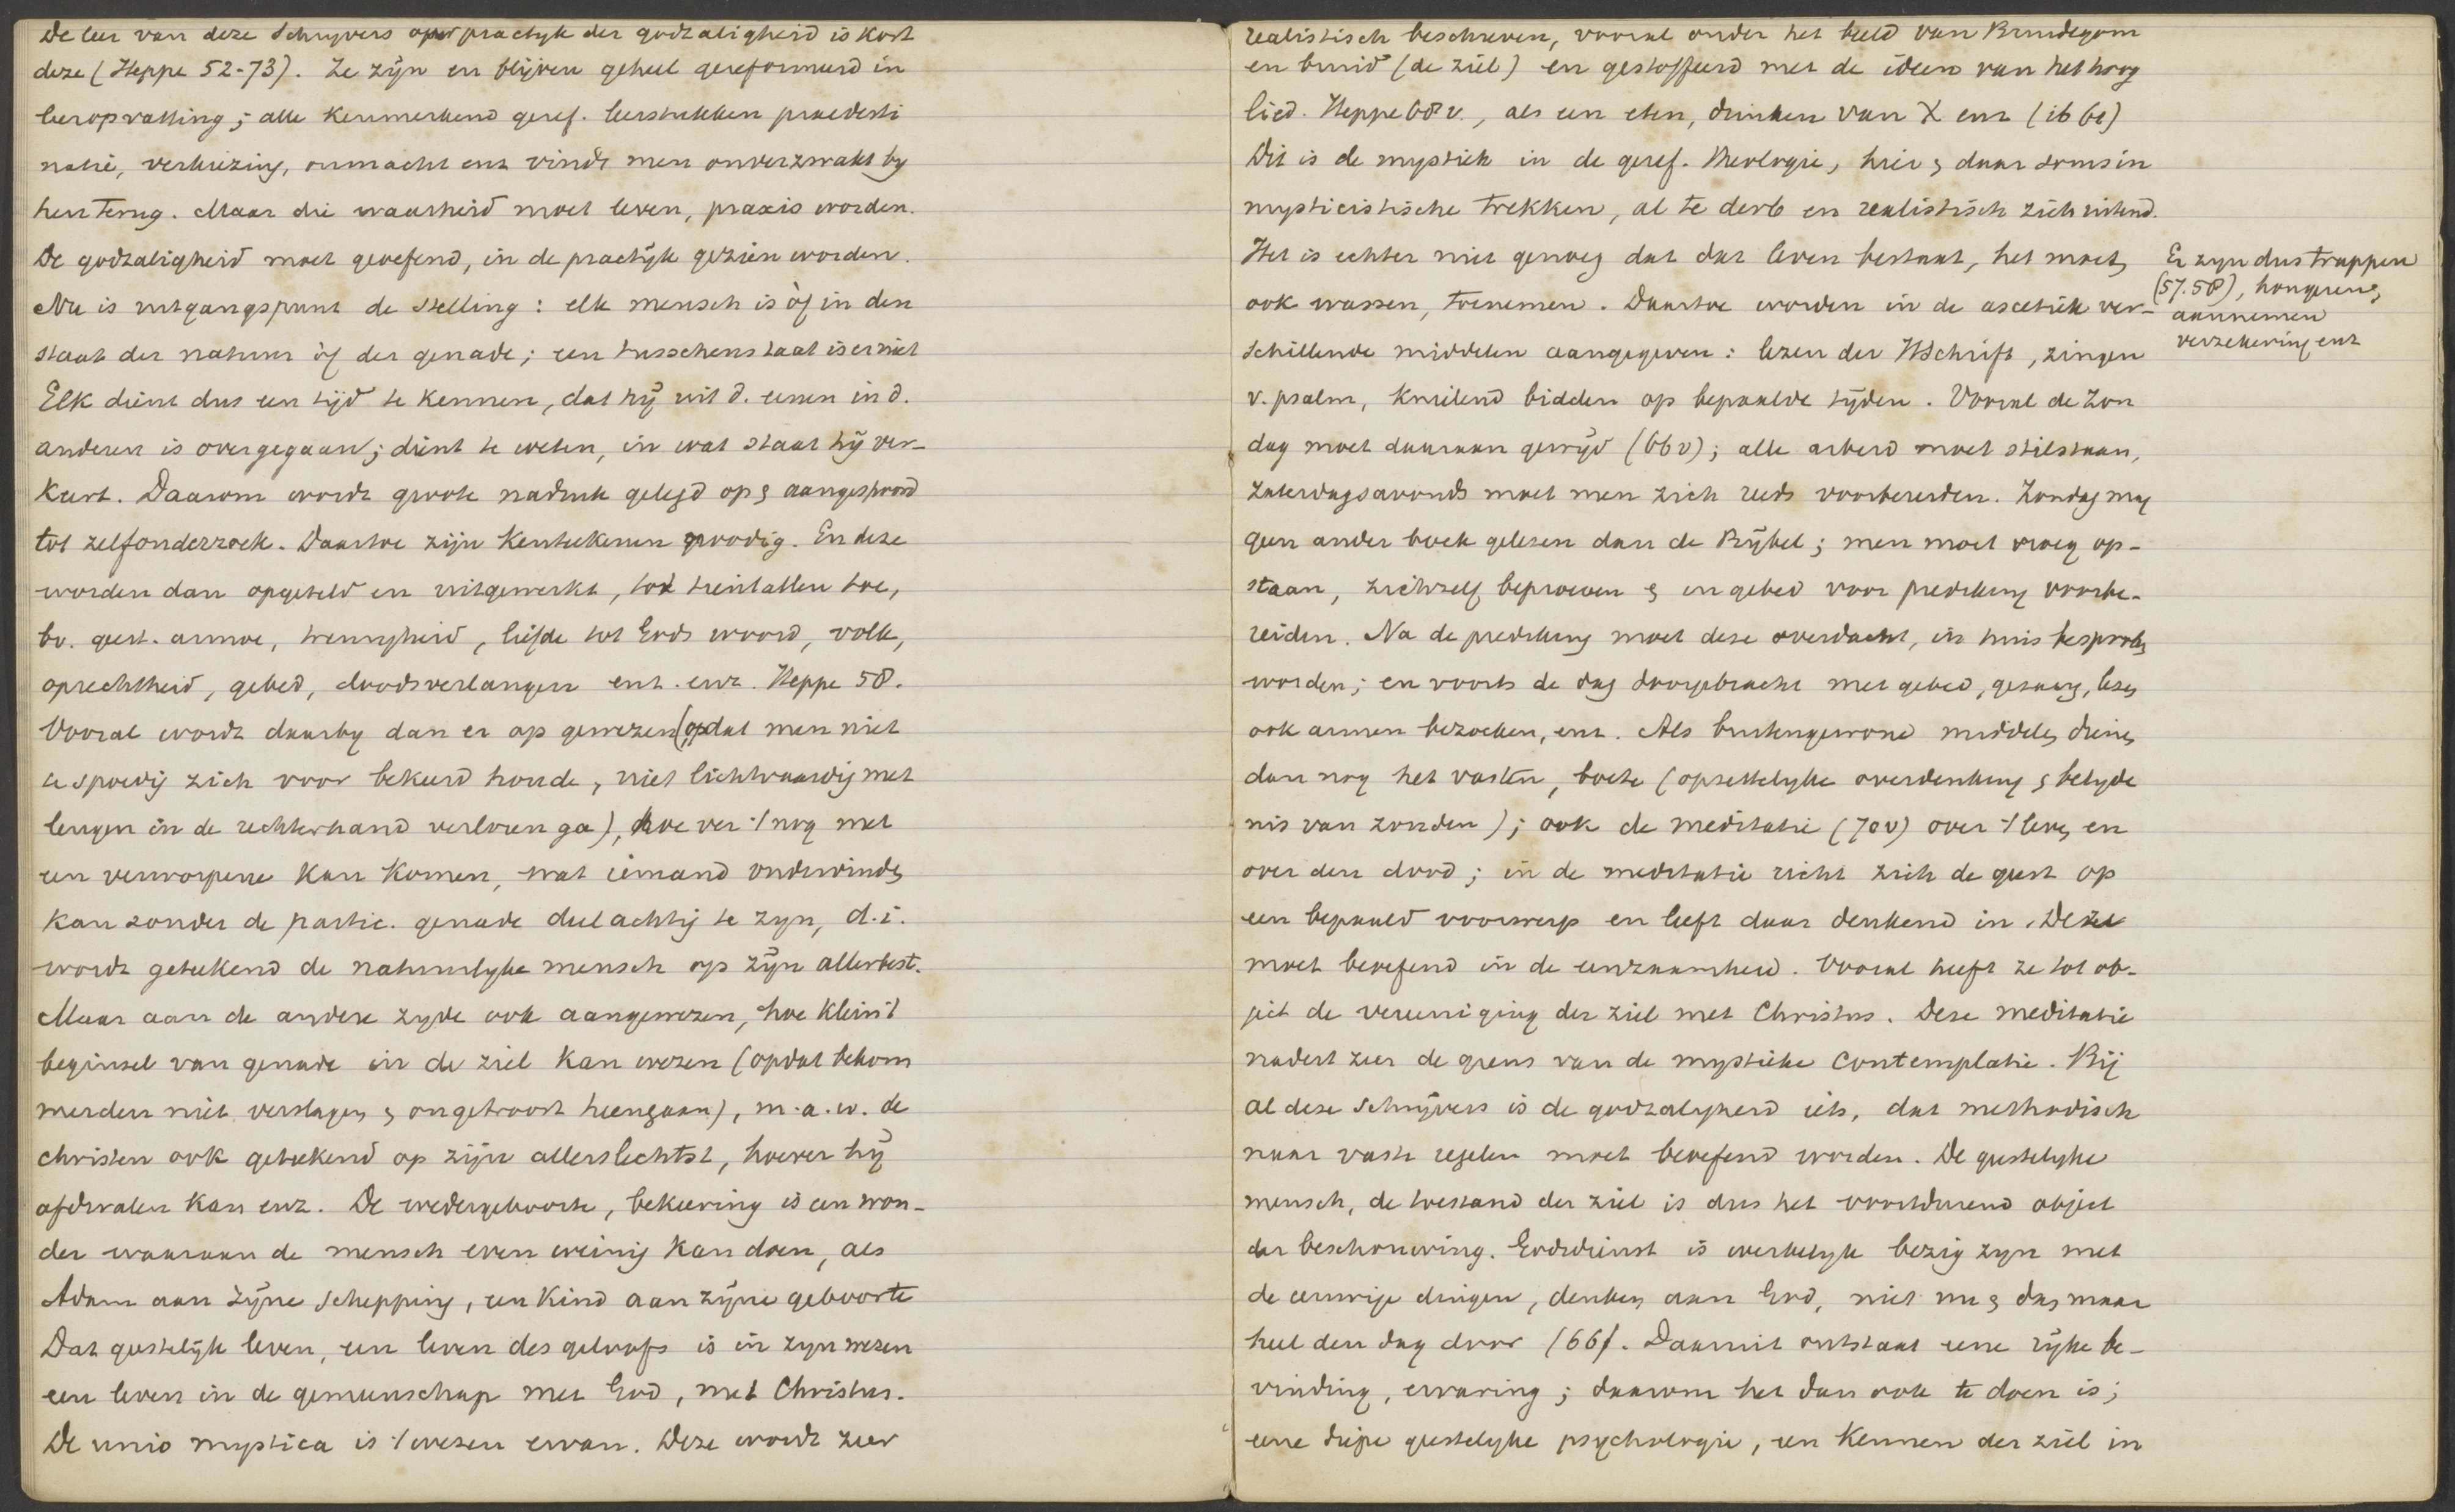 De leer van deze Schryvers over practyk der godzaligheid is kort
deze (Heppe 52-73). Ze zijn en blijven geheel gereformeerd in
leeropvatting; alle kenmerkend geref. leerstukken praedesti
natie, verkiezing, onmacht enz vindt men onverzwakt by
hen terug. Maar die waarheid moet leven, praxis worden.
De godzaligheid moet geoefend, in de practijk gezien worden.
Nu is uitgangspunt de stelling: elk mensch is òf in den
staat der natuur òf der genade; een tusschenstaat is er niet
Elk dient dus een tijd te kennen, dat hij uit d. eenen in d.
anderen is overgegaan; dient te weten, in wat staat hij ver-
keert. Daarom wordt groote nadruk gelegd op & aangespoord
tot zelfonderzoek. Daartoe zijn kenteekenen noodig. En deze
worden dan opgeteld en uitgewerkt, tot tientallen toe,
bv. geest. armoe, treurigheid, liefde tot Gods woord, volk,
oprechtheid, gebed, doodsverlangen enz. enz. Heppe 58.
Vooral wordt daarby dan er op gewezen (opdat men niet
te spoedig zich voor bekeerd houde, niet lichtvaardig met
leugen in de rechterhand verloren ga), hoe ver 't nog met
een verworpene kan komen, wat iemand ondervinden
kan zonder de partic. genade deelachtig te zyn, d.i.
wordt geteekend de natuurlyke mensch op zijn allerbest.
Maar aan de andere zyde ook aangewezen, hoe klein 't
beginsel van genade in de ziel kan wezen (opdat bekom
merden niet verslagen & ongetroost heengaan), m.a.w. de
christen ook geteekend op zijn allerslechtst, hoever hij
afdwalen kan enz. De wedergeboorte, bekeering is een won-
der waaraan de mensch even weinig kan doen, als
Adam aan zijne schepping, een kind aan zijne geboorte
Dat geestelijk leven, een leven des geloofs is in zyn wezen
een leven in de gemeenschap met God, met Christus.
De unio mystica is 't wezen ervan. Deze wordt zeer
realistisch beschreven, vooral onder het beeld van Bruidegom
en bruid (de ziel) en gestoffeerd met de ideen van het hoog
lied. Heppe 68 v., als een eten, drinken van X enz (ib 61)
Dit is de mystiek in de geref. Theologie, hier & daar soms in
mysticistische trekken, al te derb en realistisch zich uitend.
Het is echter niet genoeg dat dat leven bestaat, het moet
ook wassen, toenemen. Daartoe worden in de ascetiek ver-
schillende middelen aangegeven: lezen der HSchrift, zingen
v. psalm, knielend bidden op bepaalde tijden. Vooral de Zon
dag moet daaraan gewijd (66 v); alle arbeid moet stilstaan,
Zaterdagsavonds moet men zich reeds voorbereiden. Zondag mag
geen ander boek gelezen dan de Bijbel; men moet vroeg op-
staan, zichzelf beproeven & in gebed voor prediking voorbe-
reiden. Na de prediking moet deze overdacht, in huis besproken
worden; en voorts de dag doorgebracht met gebed, gezang, lezen
ook armen bezoeken, enz. Als buitengewone middelen dienen
dan nog het vasten, boete (opzettelyke overdenking & belyde
nis van zonden); ook de meditatie (70v) over 't leven en
over den dood; in de meditatie richt zich de geest op
een bepaald voorwerp en leeft daar denkend in. Deze
moet beoefend in de eenzaamheid. Vooral heeft ze tot ob-
ject de vereeniging der ziel met Christus. Deze meditatie
nadert zeer de grens van de mystieke contemplatie. Bij
al deze Schrijvers is de godzaligheid iets, dat methodisch
naar vaste regelen moet beoefend worden. De geestelyke
mensch, de toestand der ziel is dus het voortdurend object
der beschouwing. Godsdienst is werkelyk bezig zyn met
de eeuwige dingen, denken aan God, niet nu & dan maar
heel den dag door (66). Daaruit ontstaat eene rijke be-
vinding, ervaring; daarom het dan ook te doen is;
eene diepe geestelyke psychologie, een kennen der ziel in
Er zyn dus trappen
(57.58), hongeren,
aannemen
verzekering enz